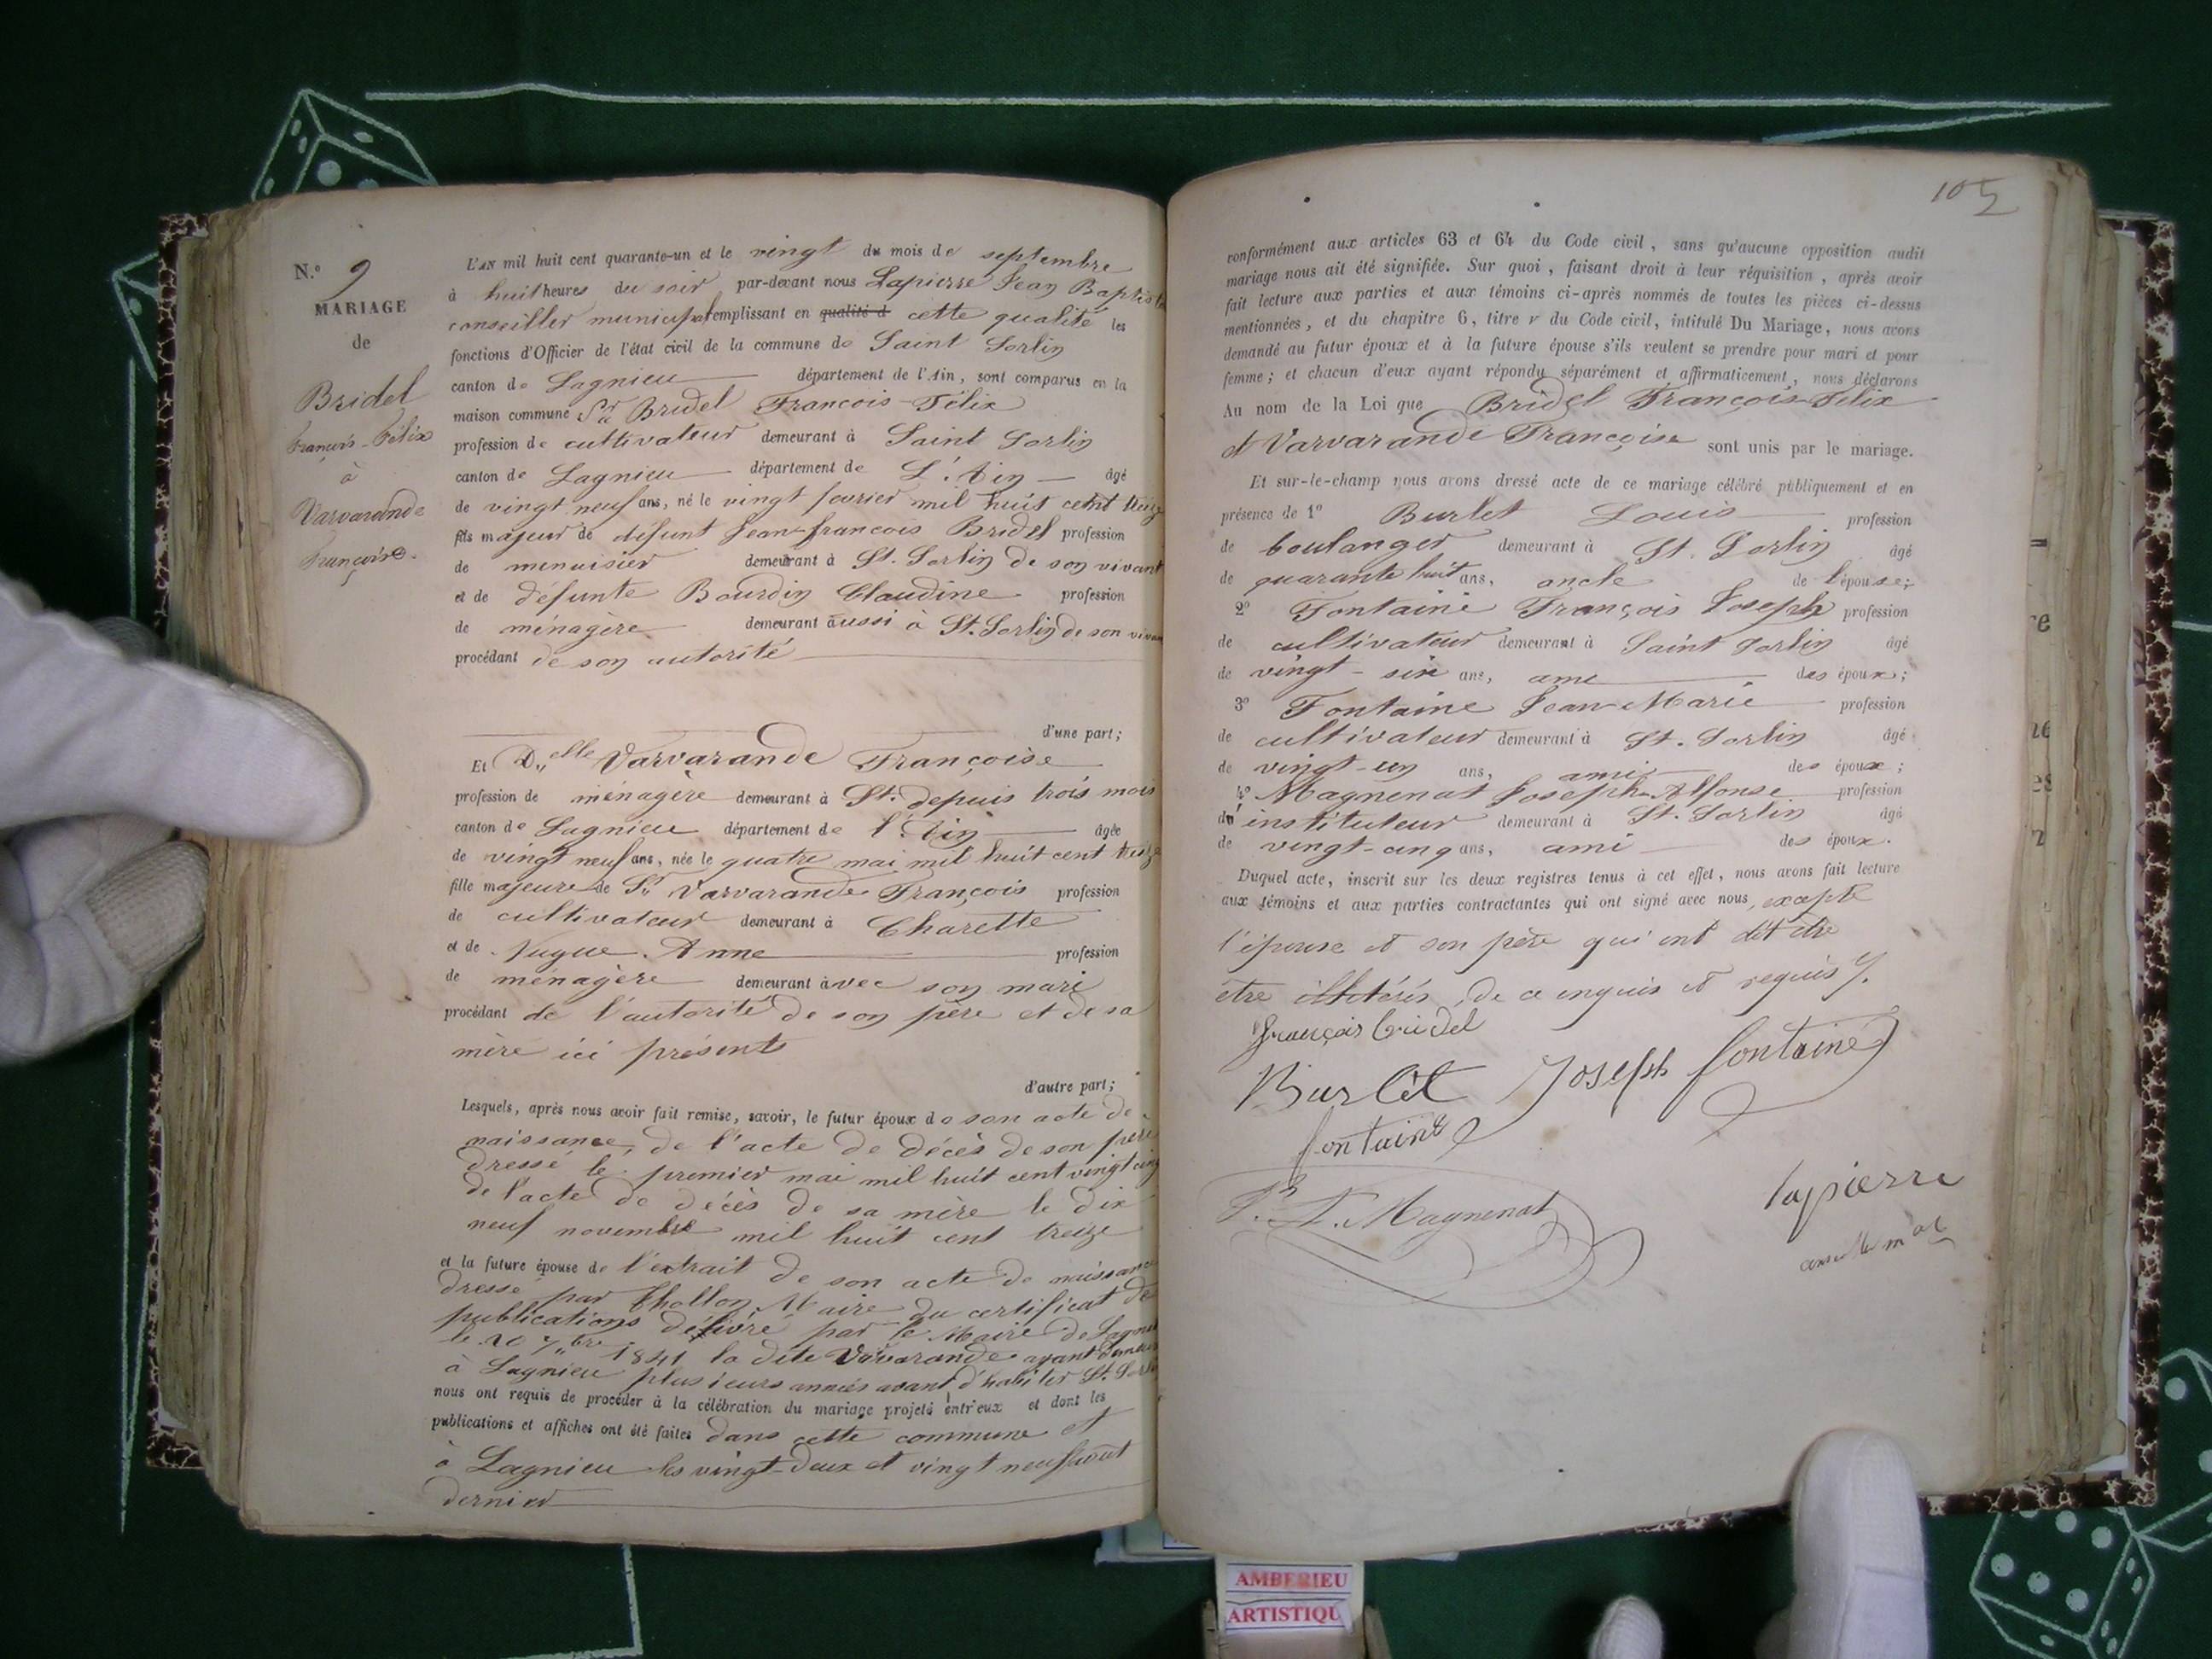 N.° 9
MARIAGE
de
Bridel
François-Félix
à
Varvarande
Françoise.
L'AN mil huit cent quarante-un et le vingt du mois de septembre
à huit heures du soir par-devant nous Lapierre Jean Baptiste
conseiller municipal remplissant en qualité d cette qualité les
fonctions d'Officier de l'état civil de la commune de Saint Sorlin
canton de Lagnieu département de l'Ain, sont comparus en la
maison commune Sr Bridel François-Félix
profession de cultivateur demeurant à Saint Sorlin
canton de Lagnieu département de L'Ain âgé
de vingt neuf ans, né le vingt fevrier mil huit cent treize
fils majeur de défunt Jean-francois Bridel profession
de menuisier demeurant à St. Sorlin de son vivant
et de défunte Bourdin Claudine profession
de ménagère demeurant aussi à St. Sorlin de son vivan
procédant de son autorité
d'une part;
Et Delle Varvarande Françoise
profession de ménagère demeurant à St. depuis trois mois
canton de Lagnieu département de l'Ain âgée
de vingt neuf ans, née le quatre mai mil huit cent treize
fille majeure de Sr Varvarande François profession
de cultivateur demeurant à Charette
et de Vugue Anne profession
de ménagère demeurant avec son mari
procédant de l'autorité de son père et de sa
mère ici présents
d'autre part;
Lesquels, après nous avoir fait remise, savoir, le futur époux de son acte de
naissance, de l'acte de décès de son père
dressé le premier mai mil huit cent vingt cinq
de l'acte de décès de sa mère le dix
neuf novembre mil huit cent treize
et la future épouse de l'extrait de son acte de naissance
dressé par Thollon Maire du certificat de
publications délivré par le Maire de Lagnieu
le 20 7bre 1841 la dite Varvarande ayant demeuré
à Lagnieu plusieurs années avant d'habiter St. Sorlin
nous ont requis de procéder à la célébration du mariage projeté entr'eux et dont les
publications et affiches ont été faites dans cette commune et
à Lagnieu les vingt-deux et vingt neuf août
dernier
105
conformément aux articles 63 et 64 du Code civil, sans qu'aucune opposition audit
mariage nous ait été signifiée. Sur quoi, faisant droit à leur réquisition, après avoir
fait lecture aux parties et aux témoins ci-après nommés de toutes les pièces ci-dessus
mentionnées, et du chapitre 6, titre v du Code civil, intitulé Du Mariage, nous avons
demandé au futur époux et à la future épouse s'ils veulent se prendre pour mari et pour
femme; et chacun d'eux ayant répondu séparément et affirmativement, nous déclarons
Au nom de la Loi que Bridel François-Félix
et Varvarande Françoise sont unis par le mariage.
Et sur-le-champ nous avons dressé acte de ce mariage célébré publiquement et en
présence de 1° Burlet Louis profession
de boulanger demeurant à St. Sorlin âgé
de quarante huit ans, oncle de l'épouse;
2° Fontaine François Joseph profession
de cultivateur demeurant à Saint Sorlin âgé
de vingt-six ans, ami des époux;
3° Fontaine Jean-Marie profession
de cultivateur demeurant à St. Sorlin âgé
de vingt-un ans, ami des époux;
4° Magnenat Joseph-Alfonse profession
d'instituteur demeurant à St. Sorlin âgé
de vingt-cinq ans, ami des époux.
Duquel acte, inscrit sur les deux registres tenus à cet effet, nous avons fait lecture
aux témoins et aux parties contractantes qui ont signé avec nous, excepté
l'épouse et son père qui ont dit être
être illitérés, de ce enquis et requis.
françois bridel
Burlet Joseph fontaine
fontaine
Magnenat
lapierre
AMBERIEU
ARTISTIQU